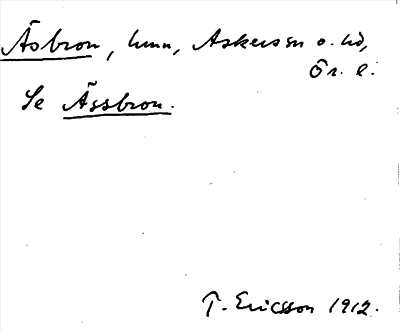 Åsbron, hmn, Askersun o. hd,
Ör. l.
Se Åssbron.
T. Ericsson 1912.